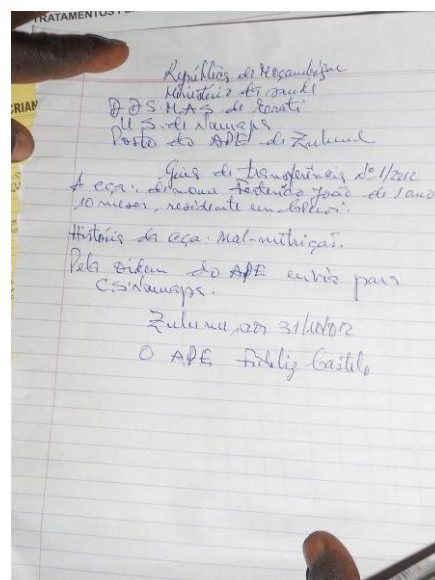 TRATAMENTOS
CRIAN
República de Moçambique
Ministério da saúde
D.D.S.M.A.S de Eráti
U.S. de Namapa
Posto do APE de
Guia de transferência Nº 1/2012
A cça: de nome João de 1 ano
10 meses, residente em
História da cça: Mal-nutriçao.
Pela ordem do APE envio para
C.S. Namapa.
aos 31/10/012
O APE Fideliz Castelo